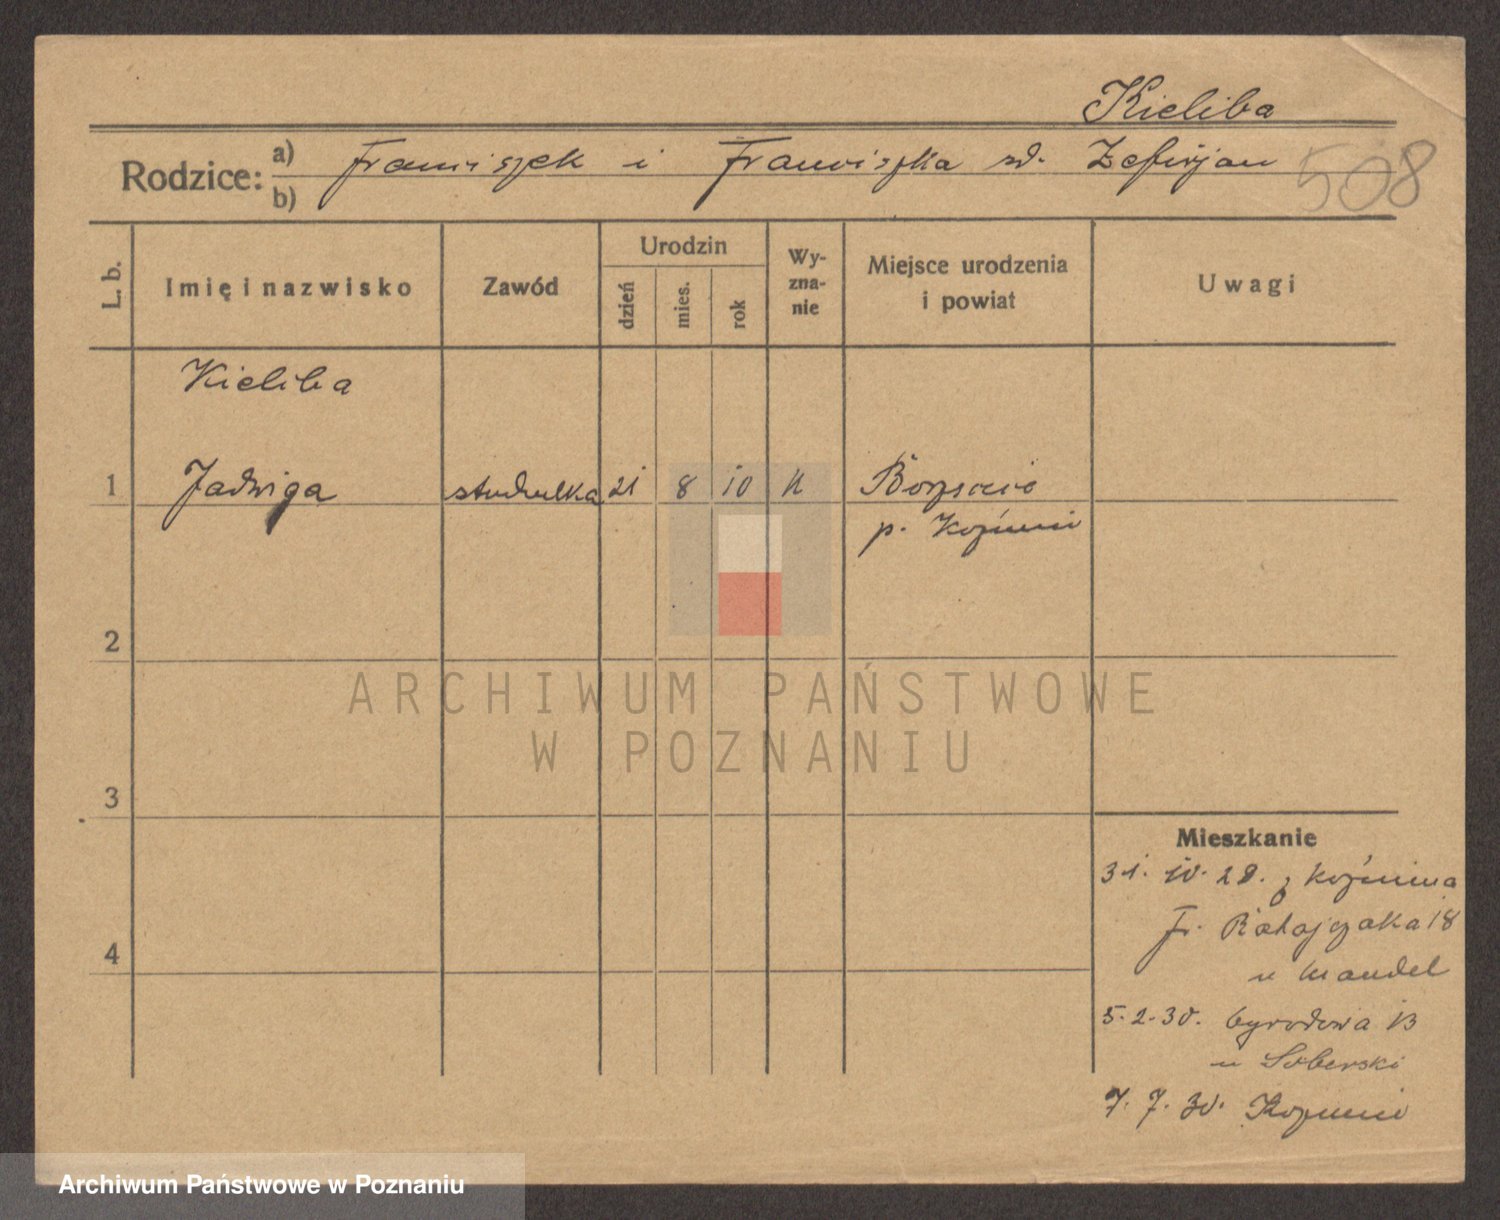 Kieliba
Rodzice: a) b) Franciszek i Franciszka zd. Zefirjan
508
L. b.
Imię i nazwisko
Zawód
Urodzin
dzień
mies.
rok
Wy-
zna-
nie
Miejsce urodzenia
i powiat
Uwagi
Kieliba
1 Jadwiga 21 8 10 k
p. Koźmin
2
ARCHIWUM PAŃSTWOWE
W POZNANIU
3
Mieszkanie
31. 10. 28. z Koźmina
Fr. Ratajczaka 18
u Mandel
4
5. 2. 30. Ogrodowa 13
u Soberski
7. 7. 30. Koźmin
Archiwum Państwowe w Poznaniu